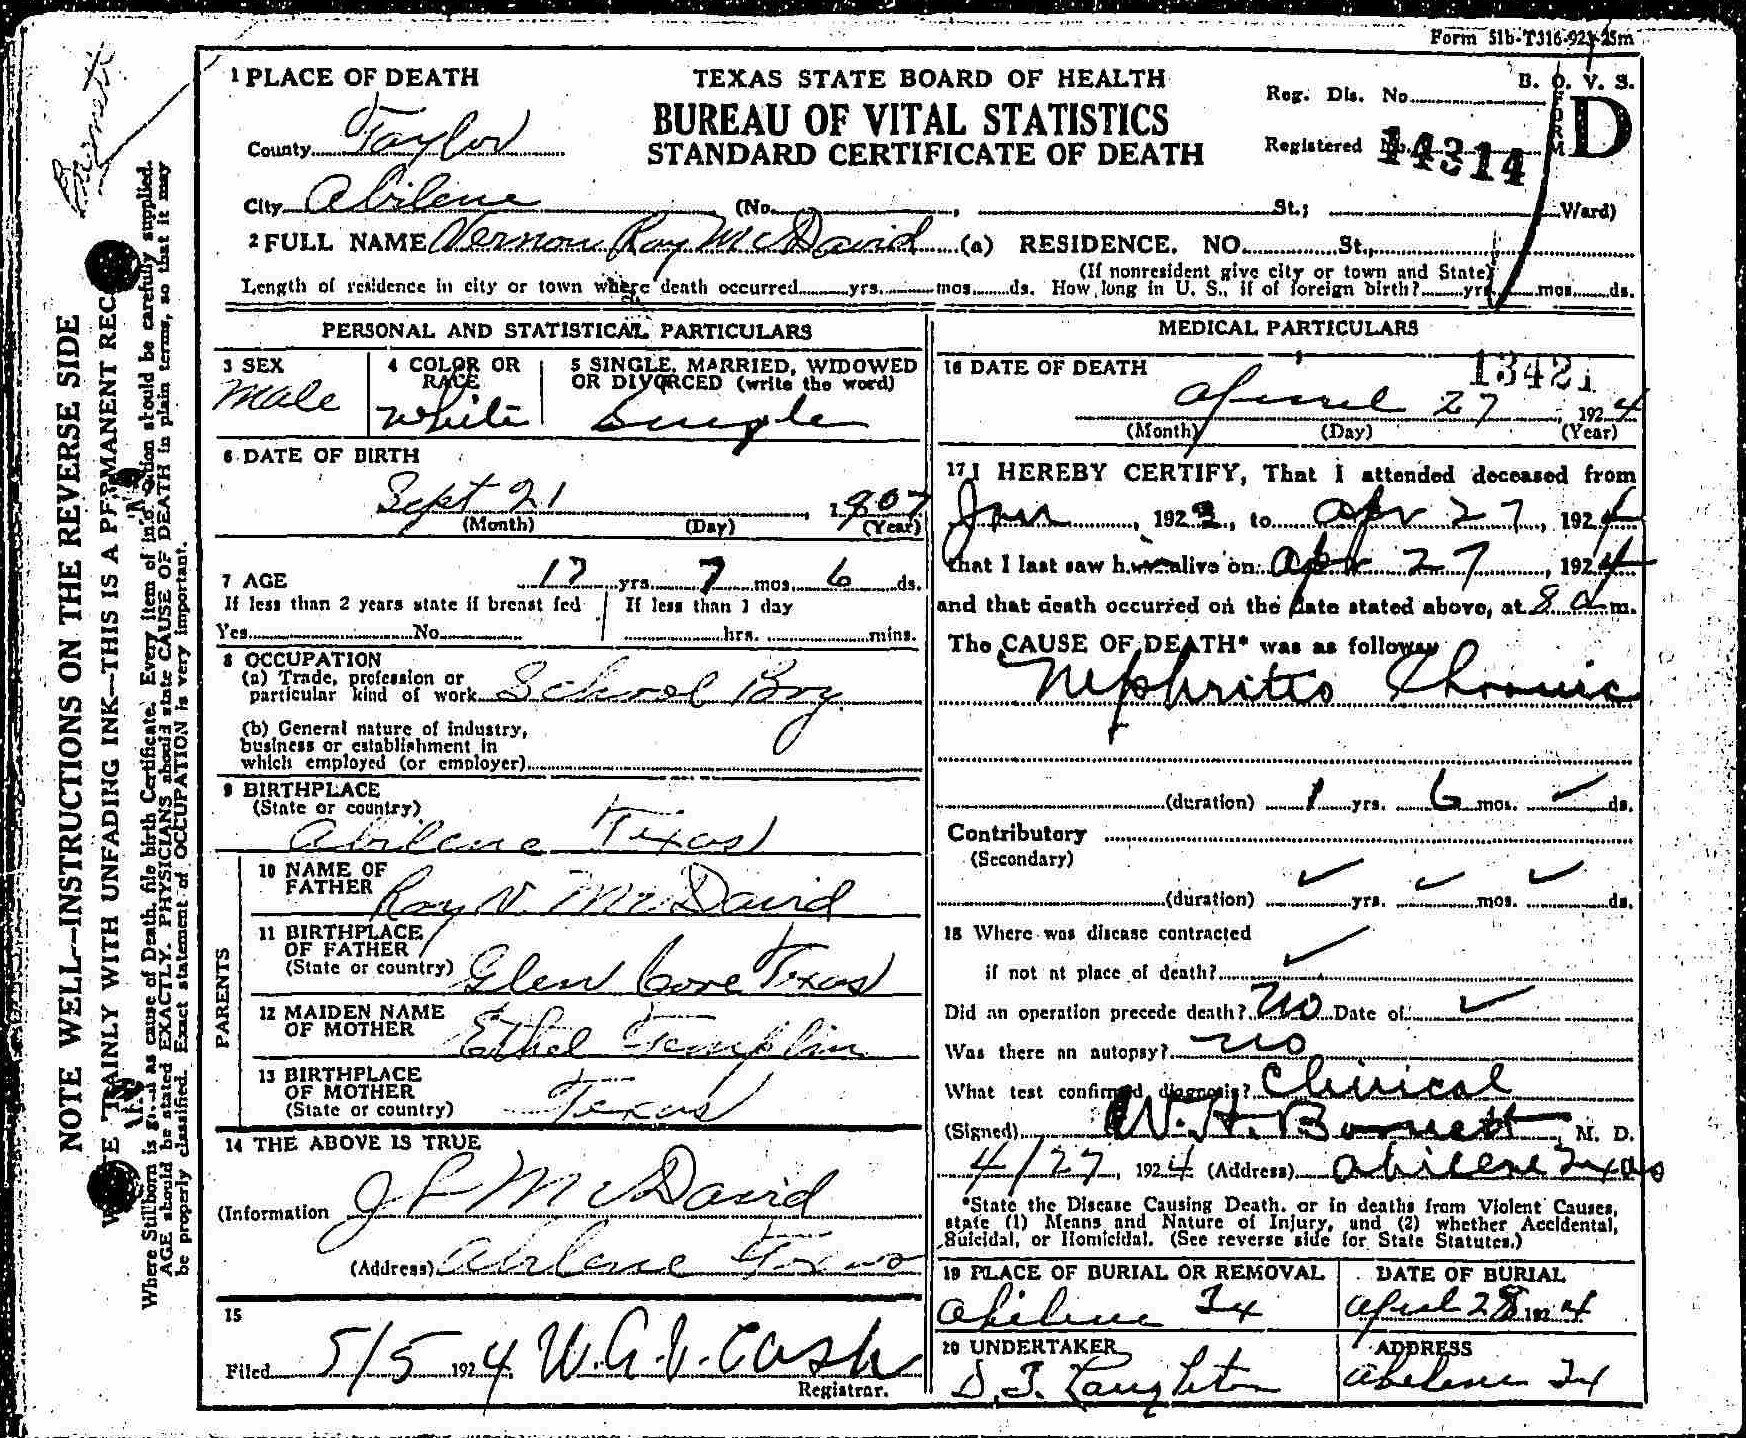 Form 51b-T316-923-25m
1 PLACE OF DEATH
TEXAS STATE BOARD OF HEALTH
B. O. V. S.
BUREAU OF VITAL STATISTICS
STANDARD CERTIFICATE OF DEATH
Reg. Dis. No.
Registered No. 14314
FORM D
County Taylor
City Abilene (No. , St.; Ward)
2 FULL NAME Vernon Ray McDavid (a) RESIDENCE. NO. St.,
(If nonresident give city or town and State)
Length of residence in city or town where death occurred yrs. mos. ds. How long in U. S., if of foreign birth? yrs. mos. ds.
PERSONAL AND STATISTICAL PARTICULARS
3 SEX
Male
4 COLOR OR RACE
White
5 SINGLE, MARRIED, WIDOWED
OR DIVORCED (write the word)
Single
6 DATE OF BIRTH
Sept 21, 1907
(Month) (Day) (Year)
7 AGE 17 yrs. 7 mos. 6 ds.
If less than 2 years state if breast fed
Yes No
If less than 1 day
hrs. mins.
8 OCCUPATION
(a) Trade, profession or
particular kind of work School Boy
(b) General nature of industry,
business or establishment in
which employed (or employer)
9 BIRTHPLACE
(State or country)
Abilene Texas
PARENTS
10 NAME OF
FATHER Ray V. McDavid
11 BIRTHPLACE
OF FATHER
(State or country) Glen Cove Texas
12 MAIDEN NAME
OF MOTHER Ethel Templin
13 BIRTHPLACE
OF MOTHER
(State or country) Texas
14 THE ABOVE IS TRUE
(Information McDavid
(Address) Abilene Texas
15
Filed 5/5 1924 Cash
Registrar.
MEDICAL PARTICULARS
16 DATE OF DEATH
13421
April 27, 1924
(Month) (Day) (Year)
17 I HEREBY CERTIFY, That I attended deceased from
Jan, 192, to Apr 27, 1924
that I last saw him alive on Apr 27, 1924
and that death occurred on the date stated above, at 8 a m.
The CAUSE OF DEATH* was as follows
Nephritis Chronic
(duration) 1 yrs. 6 mos. ✓ ds.
Contributory
(Secondary)
(duration) ✓ yrs. ✓ mos. ✓ ds.
18 Where was disease contracted
if not at place of death? ✓
Did an operation precede death? No Date of ✓
Was there an autopsy? no
What test confirmed diagnosis? Clinical
(Signed) W. H. Barnett, M. D.
4/27, 1924 (Address) Abilene Texas
*State the Disease Causing Death, or in deaths from Violent Causes,
state (1) Means and Nature of Injury, and (2) whether Accidental,
Suicidal, or Homicidal. (See reverse side for State Statutes.)
19 PLACE OF BURIAL OR REMOVAL
Abilene Tx
DATE OF BURIAL
April 28 1924
20 UNDERTAKER
Laughter
ADDRESS
Abilene Tx
NOTE WELL—INSTRUCTIONS ON THE REVERSE SIDE
PLAINLY WITH UNFADING INK—THIS IS A PERMANENT REC
Where Stillborn is given as cause of Death, file birth Certificate. Every item of information should be carefully supplied.
AGE should be stated EXACTLY. PHYSICIANS should state CAUSE OF DEATH in plain terms, so that it may
be properly classified. Exact statement of OCCUPATION is very important.